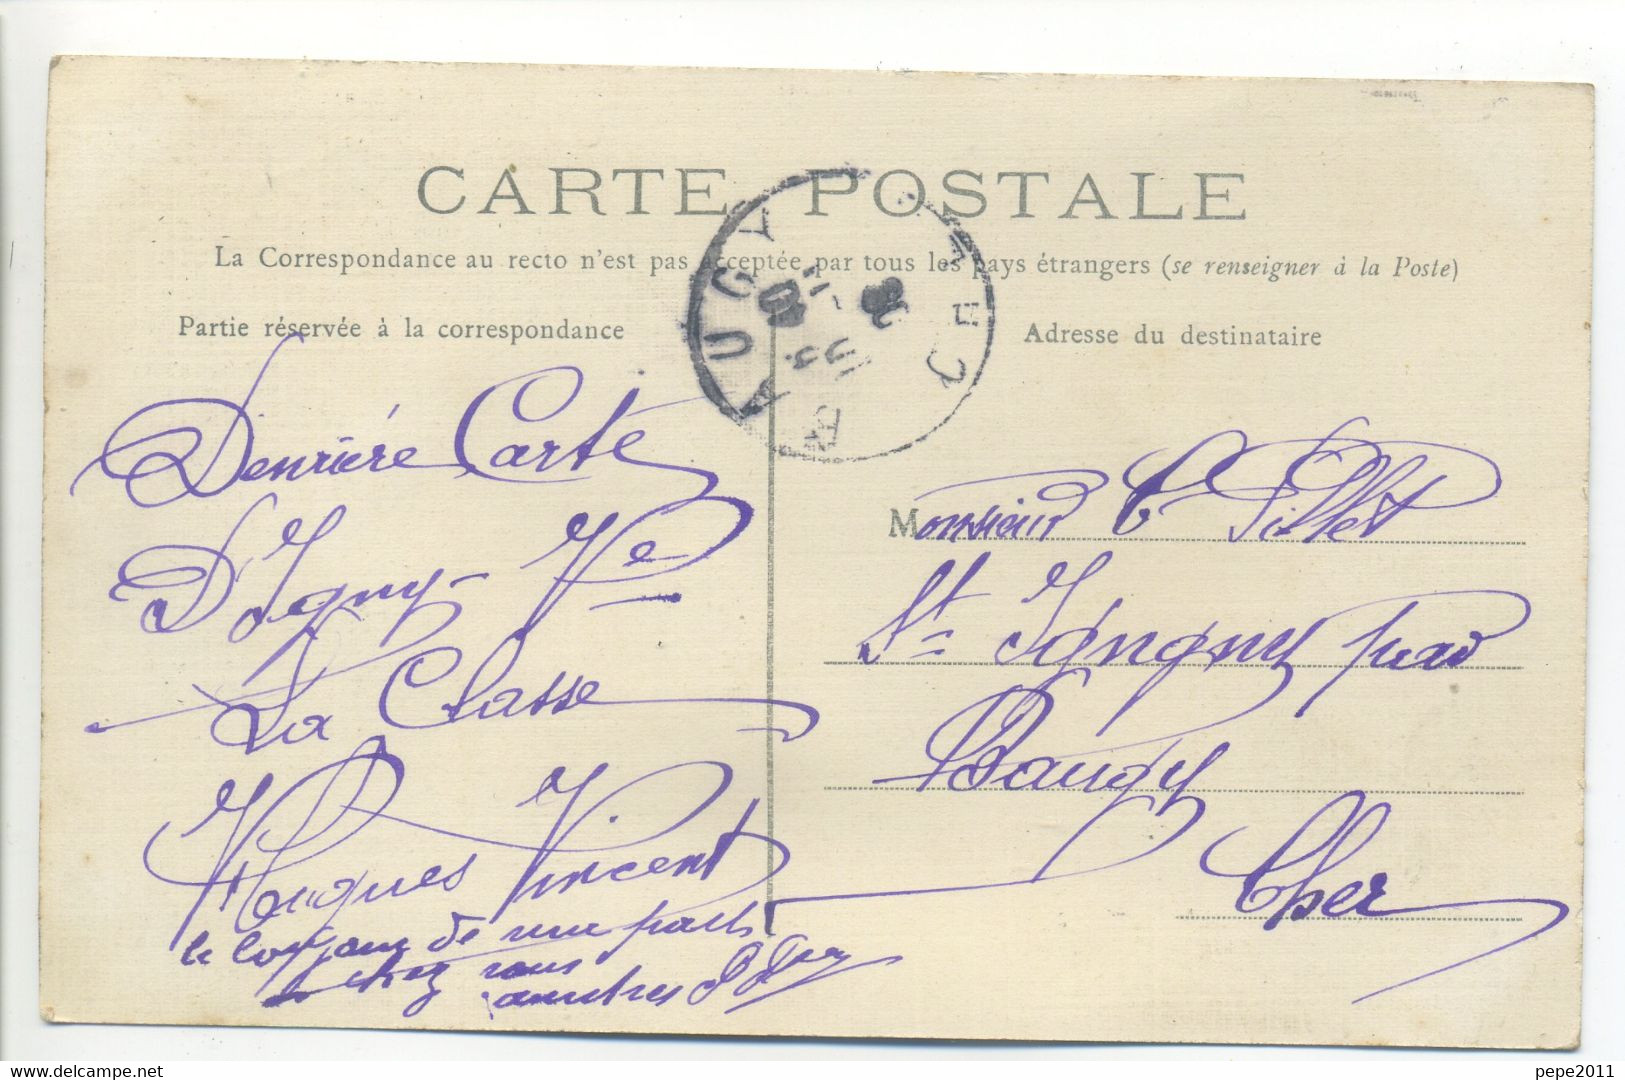 CARTE POSTALE
La Correspondance au recto n'est pas acceptée par tous les pays étrangers (se renseigner à la Poste)
Partie réservée à la correspondance
Adresse du destinataire
BAUGY
CHER
Derniére Carte
D'Igny Ve
La Classe
Hugues Vincent
le de une part
chez nous
Monsieur C Pillet
St Igny par
Baugy
Cher
pepe2011